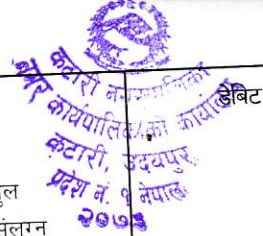 कटारी नगरपालिका
नगर कार्यपालिकाको कार्यालय
कटारी, उदयपुर
प्रदेश नं. १ नेपाल
२०७३
डेबिट
ुल
संलग्न